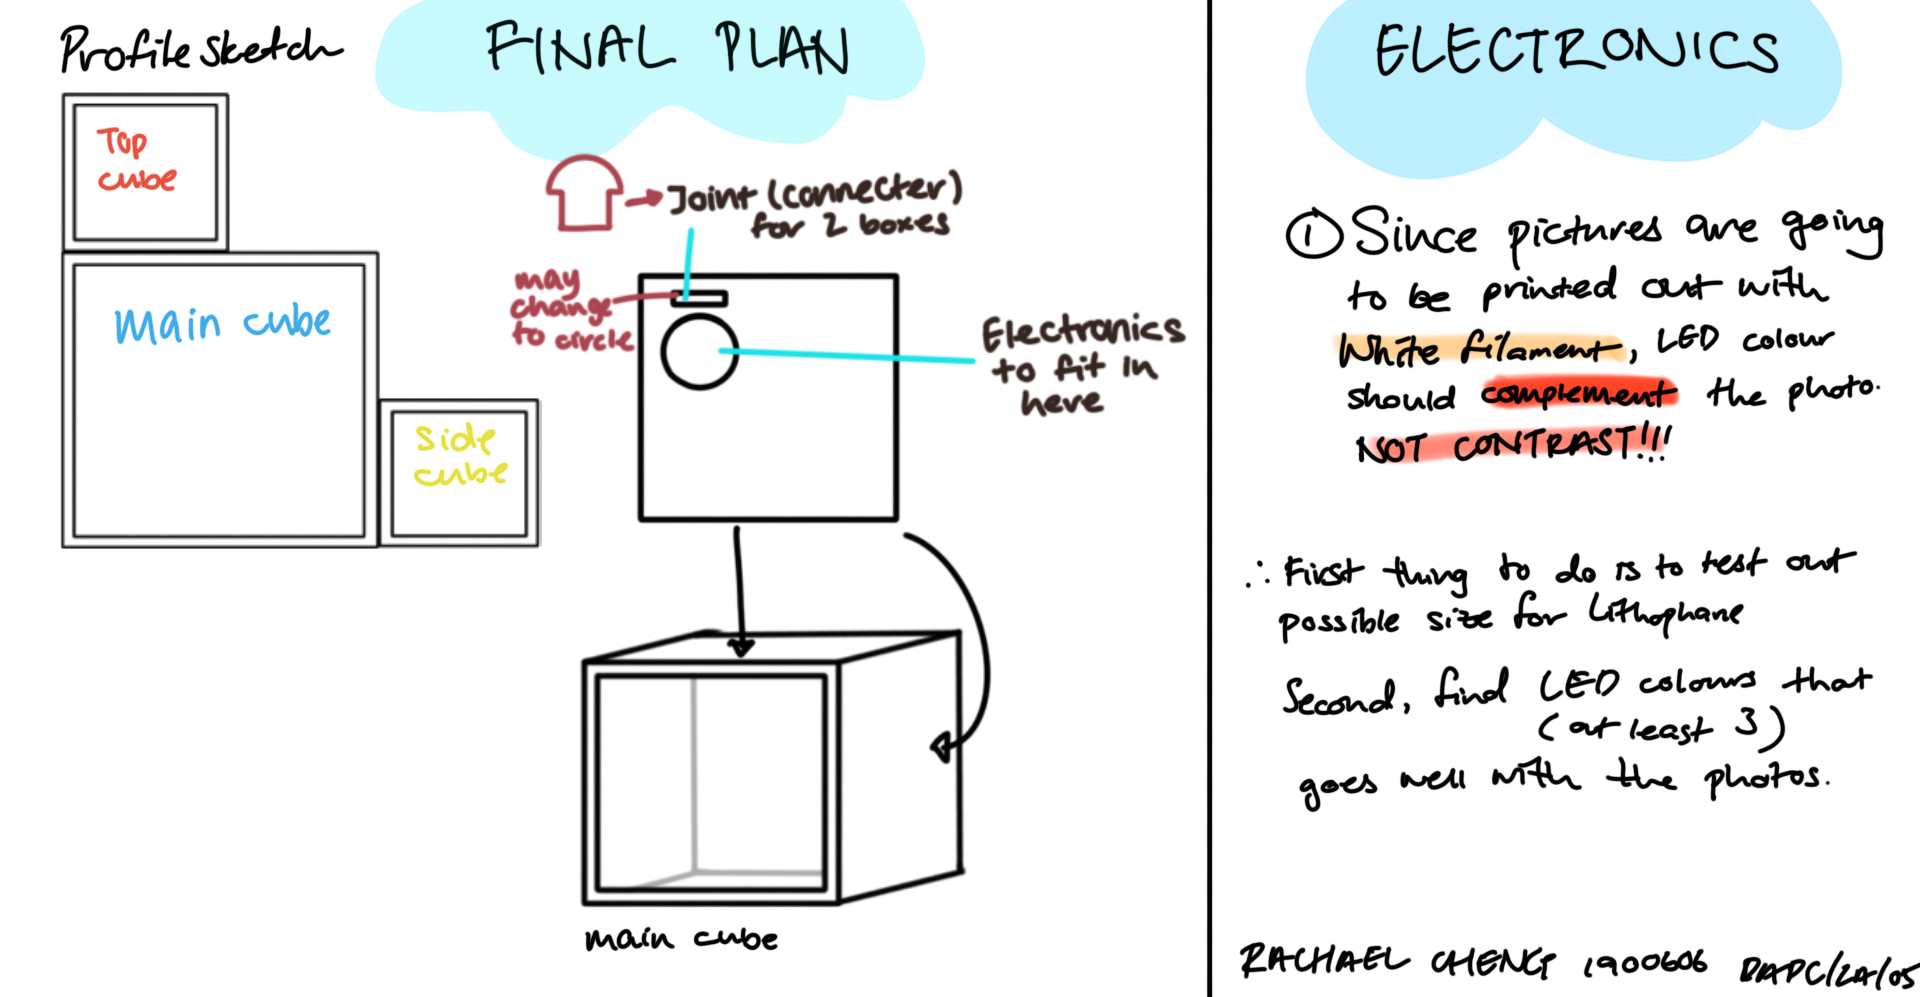 Profile sketch
FINAL PLAN
Top
cube
Main cube
Side
cube
Joint (connecter)
for 2 boxes
may
change
to circle
Electronics
to fit in
here
main cube
ELECTRONICS
① Since pictures are going
to be printed out with
White filament, LED colour
should complement the photo.
NOT CONTRAST!!!
∴ First thing to do is to test out
possible size for Lithophane
Second, find LED colours that
(at least 3)
goes well with the photos.
RACHAEL CHENG 1900606 DAPC/2A/05